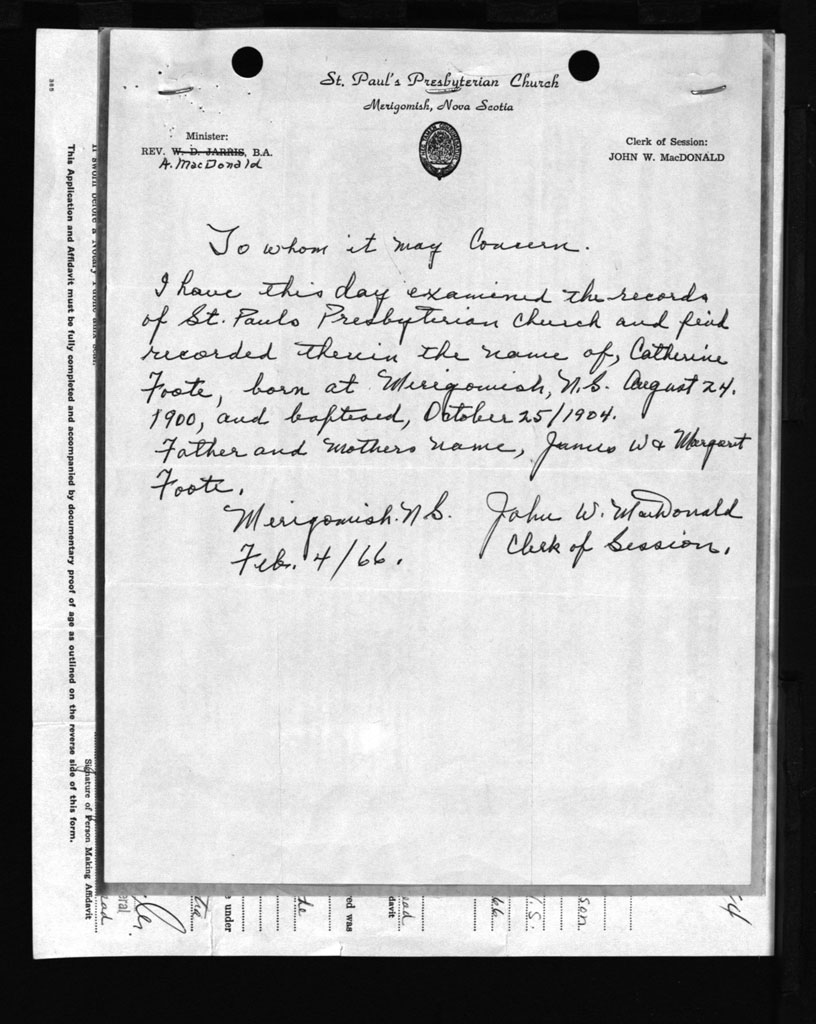 St. Paul's Presbyterian Church
Merigomish, Nova Scotia
Minister:
REV. W. D. JARRIS, B.A.
A. MacDonald
Clerk of Session:
JOHN W. MacDONALD
To whom it may Concern.
I have this day examined the records
of St. Pauls Presbyterian Church and find
recorded therein the name of, Catherine
Foote, born at Merigomish, N.S. August 24.
1900, and baptised, October 25/1904.
Father and Mothers name, James W & Margaret
Foote.
Merigomish. N S. John W. MacDonald
Feb. 4/66. Clerk of Session.
This Application and Affidavit must be fully completed and accompanied by documentary proof of age as outlined on the reverse side of this form.
Signature of Person Making Affidavit
e under
red was
davit